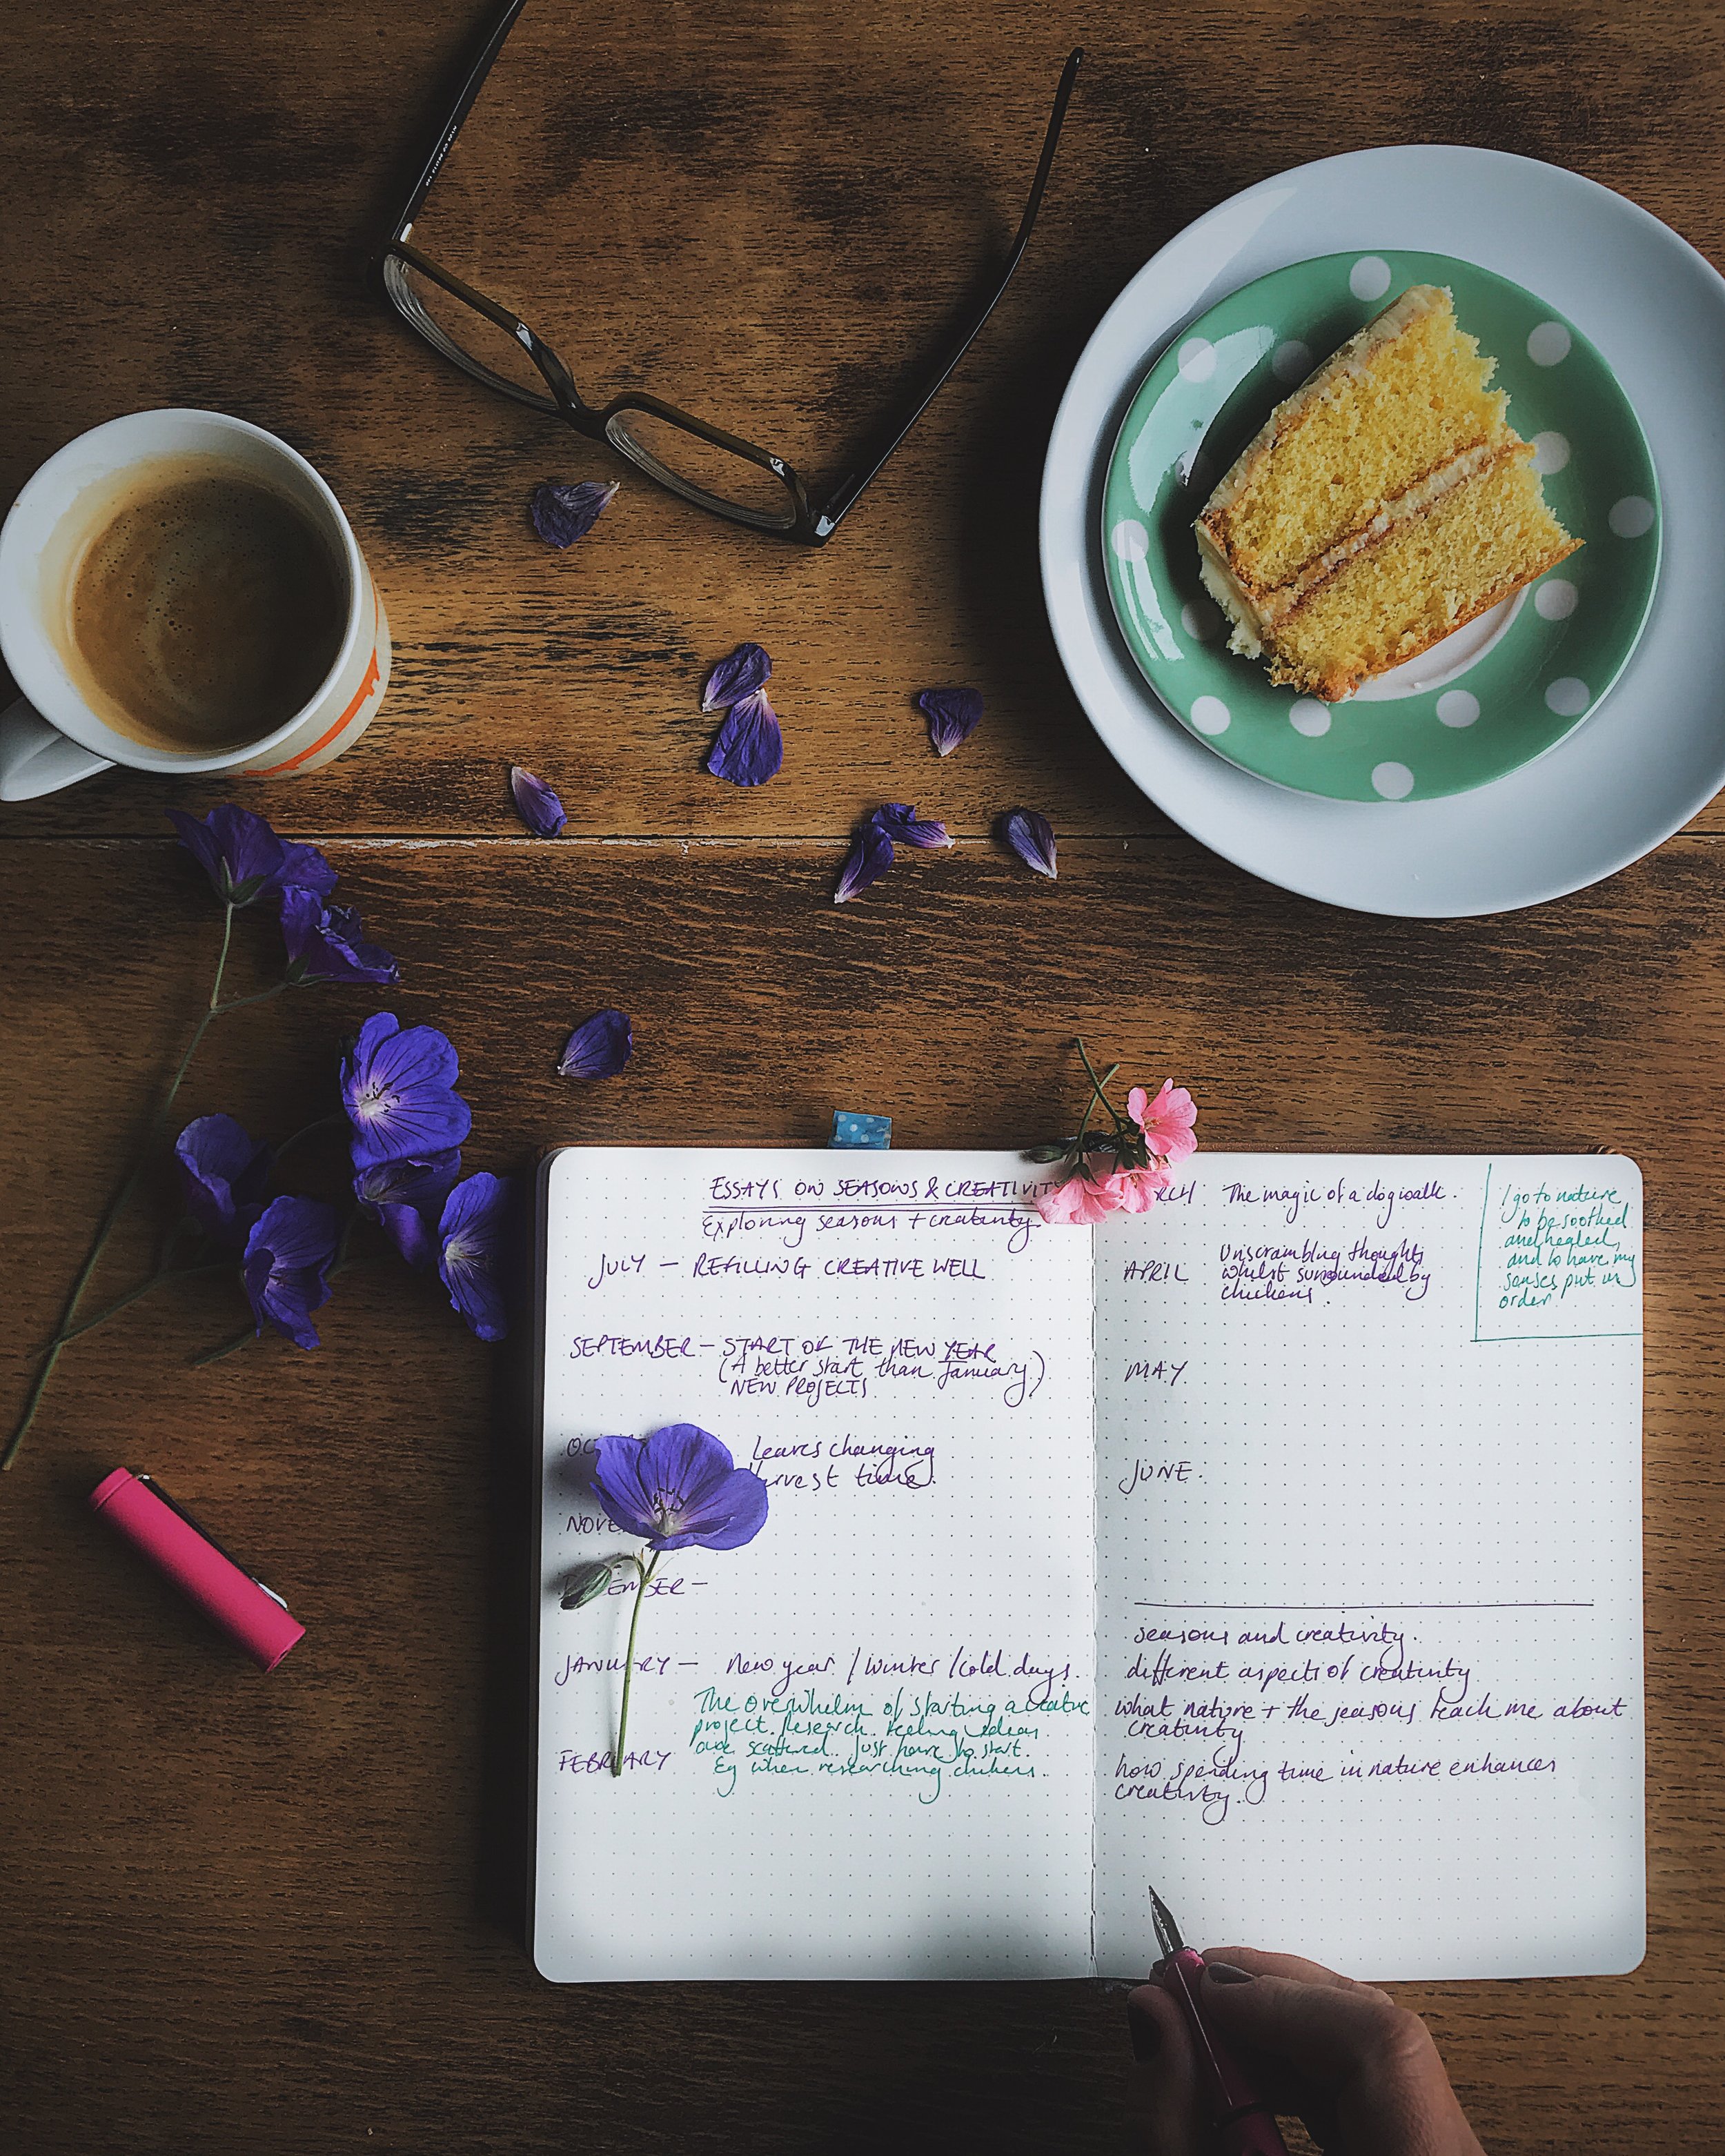 ESSAYS ON SEASONS & CREATIVIT
Exploring seasons + creativity.
JULY — REFILLING CREATIVE WELL
SEPTEMBER — START OF THE NEW YEAR
(A better start than January)
NEW PROJECTS
OC
leaves changing
rvest time.
NOVE
EMBER —
JANUARY — New year / Winter / Cold days.
The overwhelm of starting a creative
project. Research. Feeling ideas
are scattered. Just have to start.
FEBRUARY
Eg when researching chickens.
RCH The magic of a dog walk.
APRIL Unscrambling thoughts
whilst surrounded by
chickens.
I go to nature
to be soothed
and healed,
and to have my
senses put in
order
MAY
JUNE.
seasons and creativity.
different aspects of creativity
what nature + the seasons teach me about
creativity
how spending time in nature enhances
creativity.